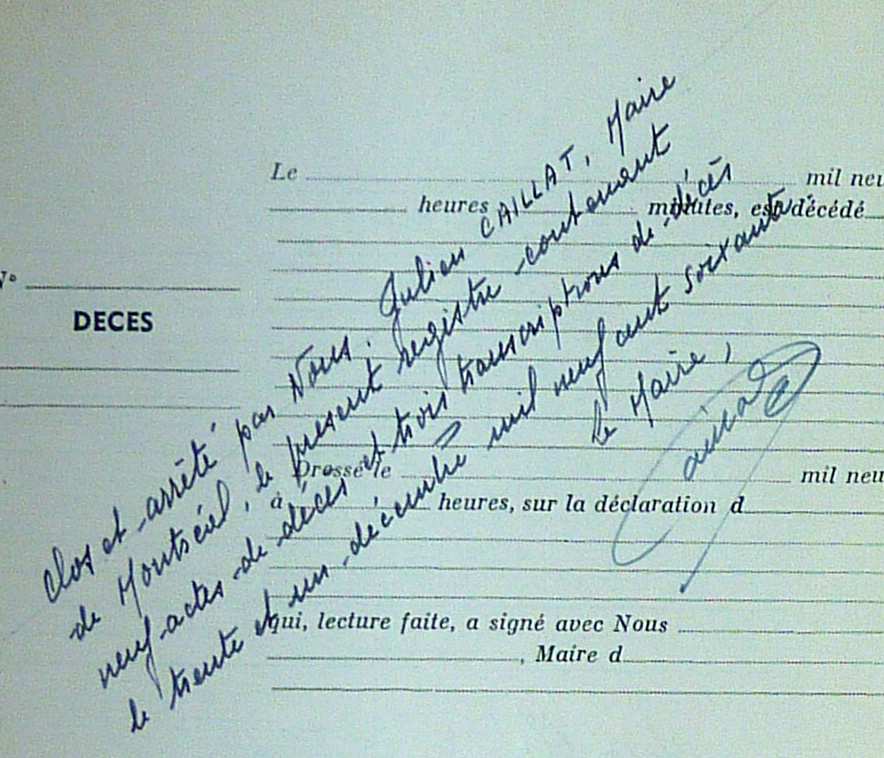 Le mil neu
heures minutes, est décédé
N°
DECES
Dressé le mil neu
à heures, sur la déclaration d
qui, lecture faite, a signé avec Nous
, Maire d
Clos et arrêté par Nous, Julien CAILLAT, Maire
de Montséül, le présent registre contenant
neuf actes de décès et trois transcriptions de décès
le trente et un décembre mil neuf cent soixante.
Le Maire,